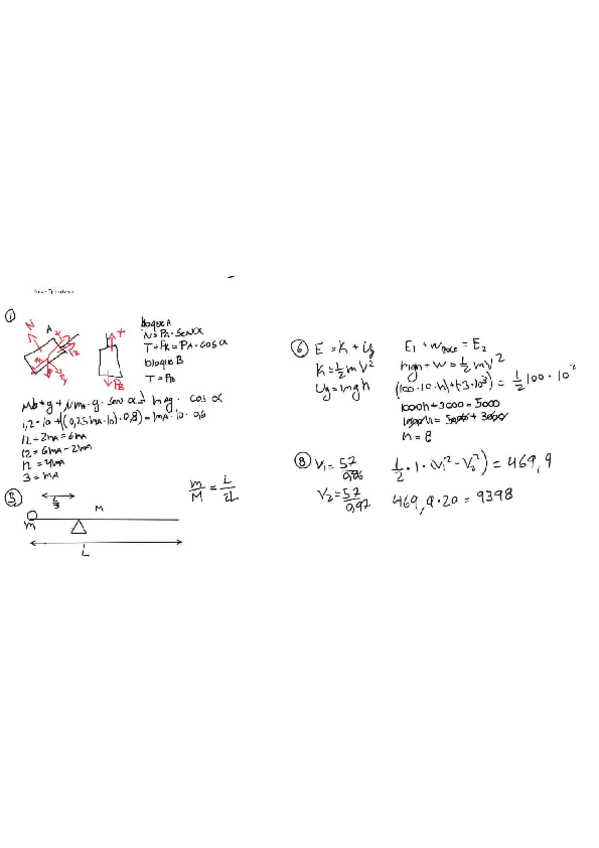 ①
A
N
T
bloque A
N = PA · SENα
T + FR = PA · COSα
bloque B
T = PB
PB
Mb · g + μmA · g · sen α = mAg · cos α
1,2 · 10 + ((0,25mA · 10) · 0,8) = mA · 10 · 0,6
12 + 2mA = 6mA
12 = 6mA - 2mA
12 = 4mA
3 = mA
⑤
m
M
L
m/M = L/2L
⑥
E = K + Ug
K = 1/2 m V²
Ug = mgh
E1 + W = E2
mgh + W = 1/2 mV²
(100 · 10 · h) + (-3 · 10³) = 1/2 100 · 10²
1000h + 3000 = 5000
1000h = 5000 + 3000
h = 8
⑧
V1 = 57/0,86
1/2 · 1 · (V1² - V2²) = 469,9
V2 = 57/0,97
469,9 · 20 = 9398